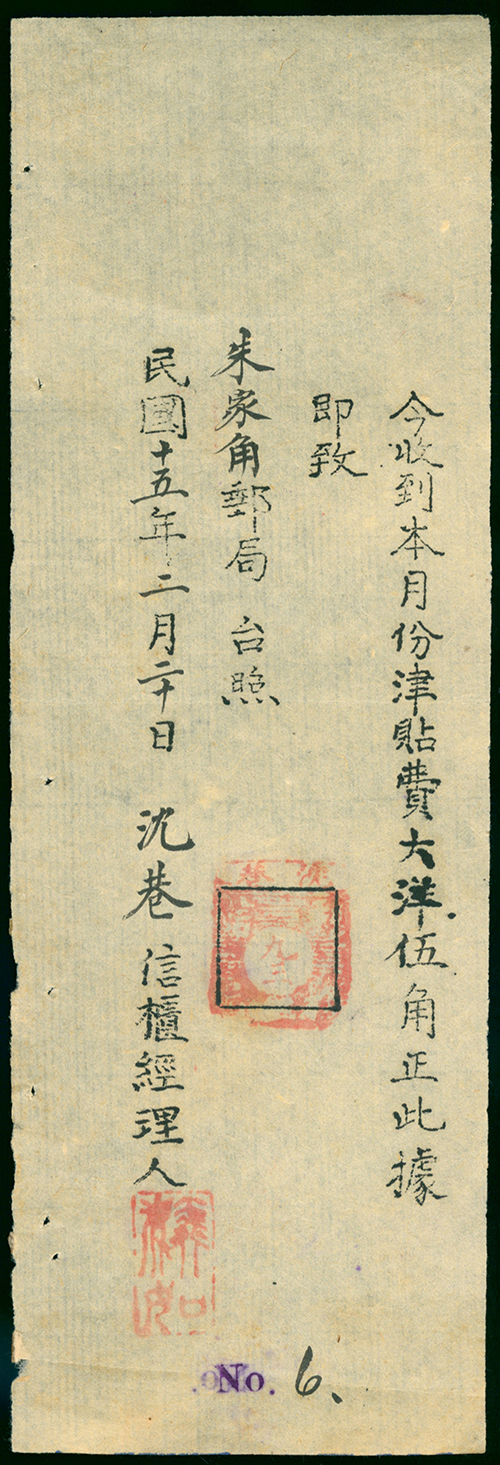 今收到本月份津貼費大洋伍角正此據
即致
朱家角郵局 台照
民國十五年二月二十日 沈巷信櫃經理人
No. 6.